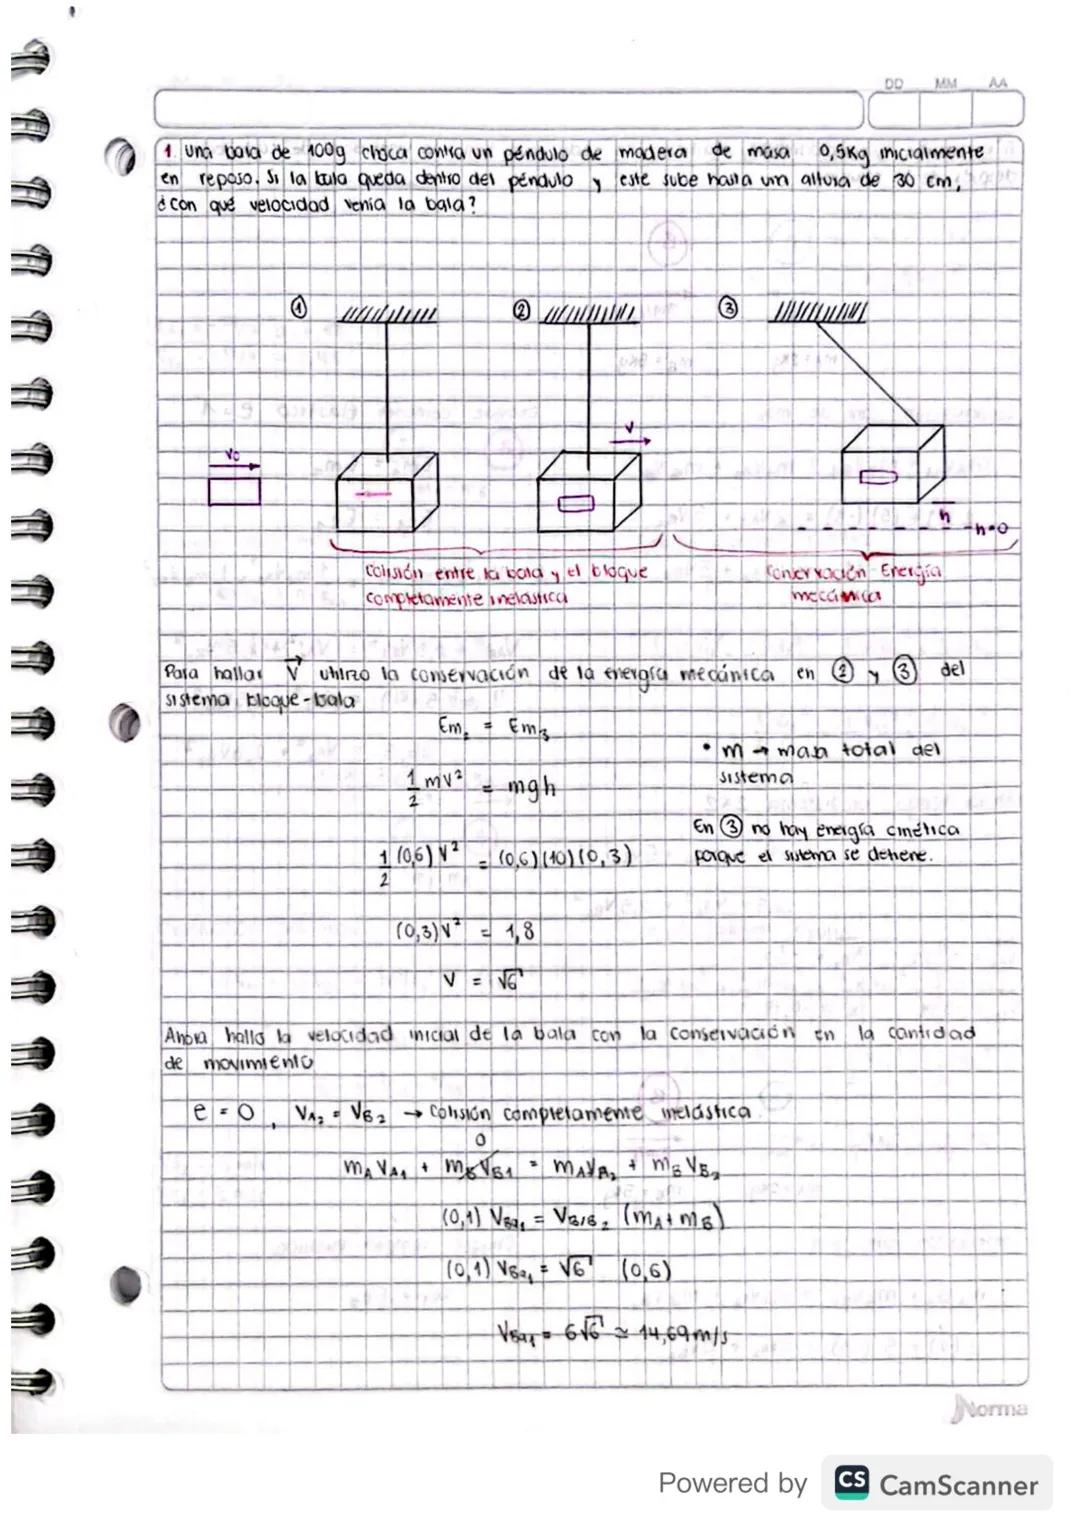 DD MM AA
1. Una bala de 100g choca contra un péndulo de madera de masa 0,5Kg inicialmente
en reposo. Si la bala queda dentro del péndulo y este sube hasta una altura de 30 cm,
¿con qué velocidad venía la bala?
① ② ③
V
V0
h
h=0
Colisión entre la bala y el bloque
completamente inelástica
Conservación Energía
mecánica
Para hallar V⃗ utilizo la conservación de la energía mecánica en ② y ③ del
sistema bloque-bala
Em₂ = Em₃
• m → masa total del
sistema
1/2 mv² = mgh
En ③ no hay energía cinética
porque el sistema se detiene.
1/2 (0,6) V² = (0,6)(10)(0,3)
(0,3)V² = 1,8
V = √6
Ahora hallo la velocidad inicial de la bala con la conservación en la cantidad
de movimiento
e = 0, VA₂ = VB₂ → Colisión completamente inelástica
0
mA VA₁ + mB VB₁ = mA VA₂ + mB VB₂
(0,1) VBa₁ = VB/B₂ (mA + mB)
(0,1) VBa₁ = √6 (0,6)
VBa₁ = 6√6 ≃ 14,69 m/s
Norma
Powered by CS CamScanner